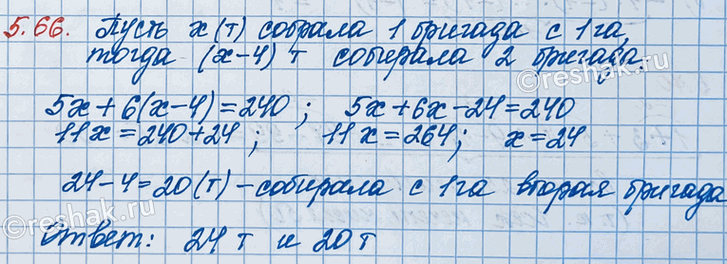 5.66. Пусть x (т) собрала 1 бригада с 1 га,
тогда (x-4) т собирала 2 бригада.
5x+6(x-4)=240; 5x+6x-24=240
11x=240+24; 11x=264; x=24
24-4=20(т)-собирала с 1га вторая бригада
Ответ: 24 т и 20 т
©reshak.ru